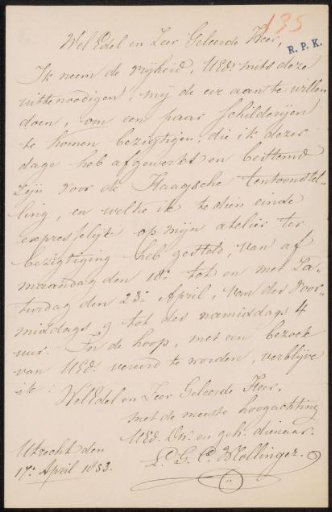 135
R. P. K.
Wel Edel en Zeer Geleerde Heer,
Ik neem de vrijheid, UEd: mits deze
uittenoodigen, mij de eer aan te willen
doen, om een paar schilderijen
te komen bezigtigen, die ik dezer
dage heb afgewerkt en bestemd
zijn voor de Haagsche tentoonstel-
ling, en welke ik te dien einde
expresselijk op mijn atelier ter
bezigtiging heb gesteld, van af
maandag den 18e tot en met Za-
turdag den 23e April, van des Voor-
middags 9 tot des namiddags 4
uur. In de hoop, met een bezoek
van UEd. vereerd te worden, verblijve
ik:
Wel Edel en Zeer Geleerde Heer.
met de meeste hoogachting
UEd. Dw. en geh. dienaar.
Utrecht den
17e April 1853.